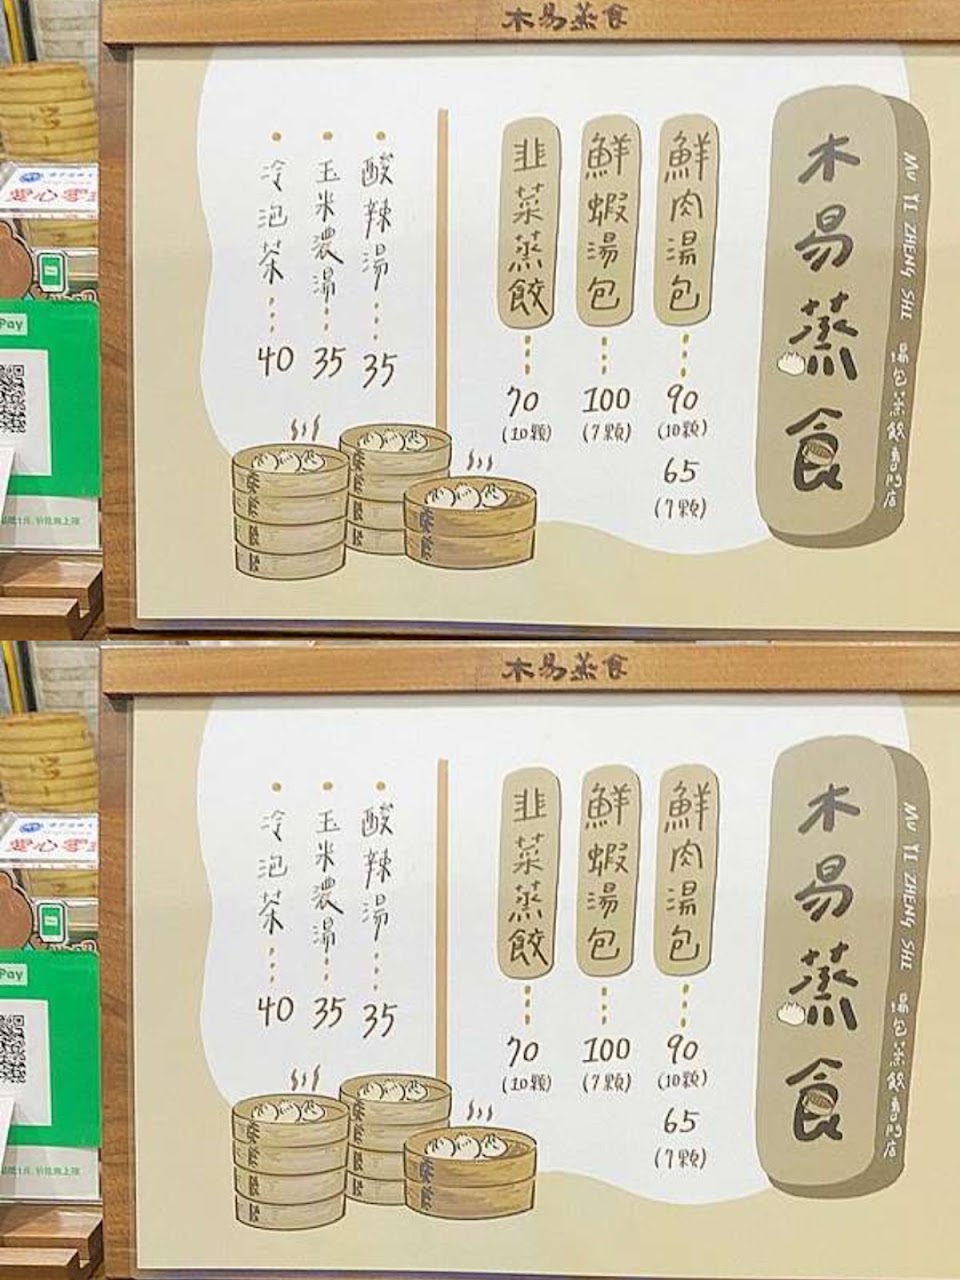 木易蒸食
木易蒸食
MU YI ZHENG SHI 湯包蒸餃專門店
鮮肉湯包
90
(10顆)
65
(7顆)
鮮蝦湯包
100
(7顆)
韭菜蒸餃
70
(10顆)
酸辣湯
35
玉米濃湯
35
冷泡茶
40
愛心零
Pay
木易蒸食
木易蒸食
MU YI ZHENG SHI 湯包蒸餃專門店
鮮肉湯包
90
(10顆)
65
(7顆)
鮮蝦湯包
100
(7顆)
韭菜蒸餃
70
(10顆)
酸辣湯
35
玉米濃湯
35
冷泡茶
40
愛心零
Pay